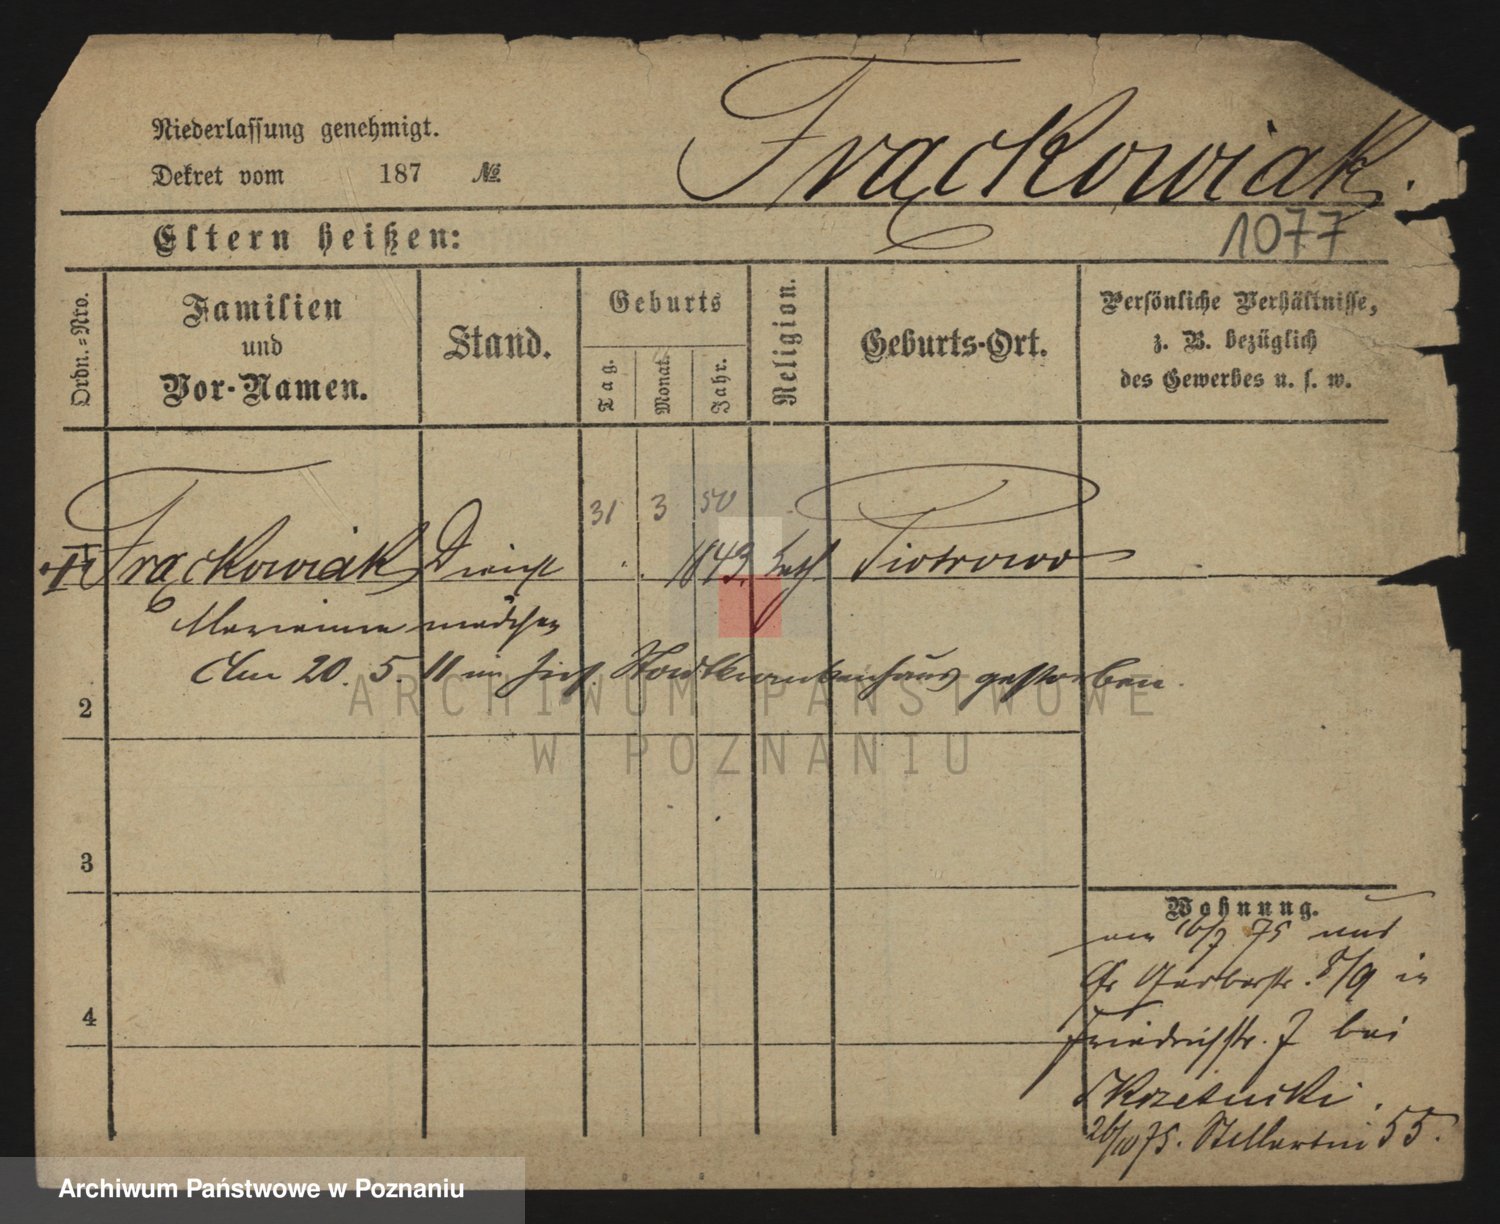 Niederlassung genehmigt.
Dekret vom 187 №
Frąckowiak.
1077
Eltern heißen:
Ordn.=Nro.
Familien
und
Vor-Namen.
Stand.
Geburts
Tag.
Monat.
Jahr.
Religion.
Geburts-Ort.
Persönliche Verhältnisse,
z. B. bezüglich
des Gewerbes u. s. w.
31 3 50
Frąckowiak Dienst 1843 kath Piotrowo
Marianna mädchen
Am 20. 5. 11 im hies. Stadtkrankenhaus gestorben.
2
3
4
Wohnung.
75
Gr Gerberstr. 8/9 in
Friedrichstr. 7 bei
Skrzetuski.
26/10 75. 55.
ARCHIWUM PAŃSTWOWE
W POZNANIU
Archiwum Państwowe w Poznaniu